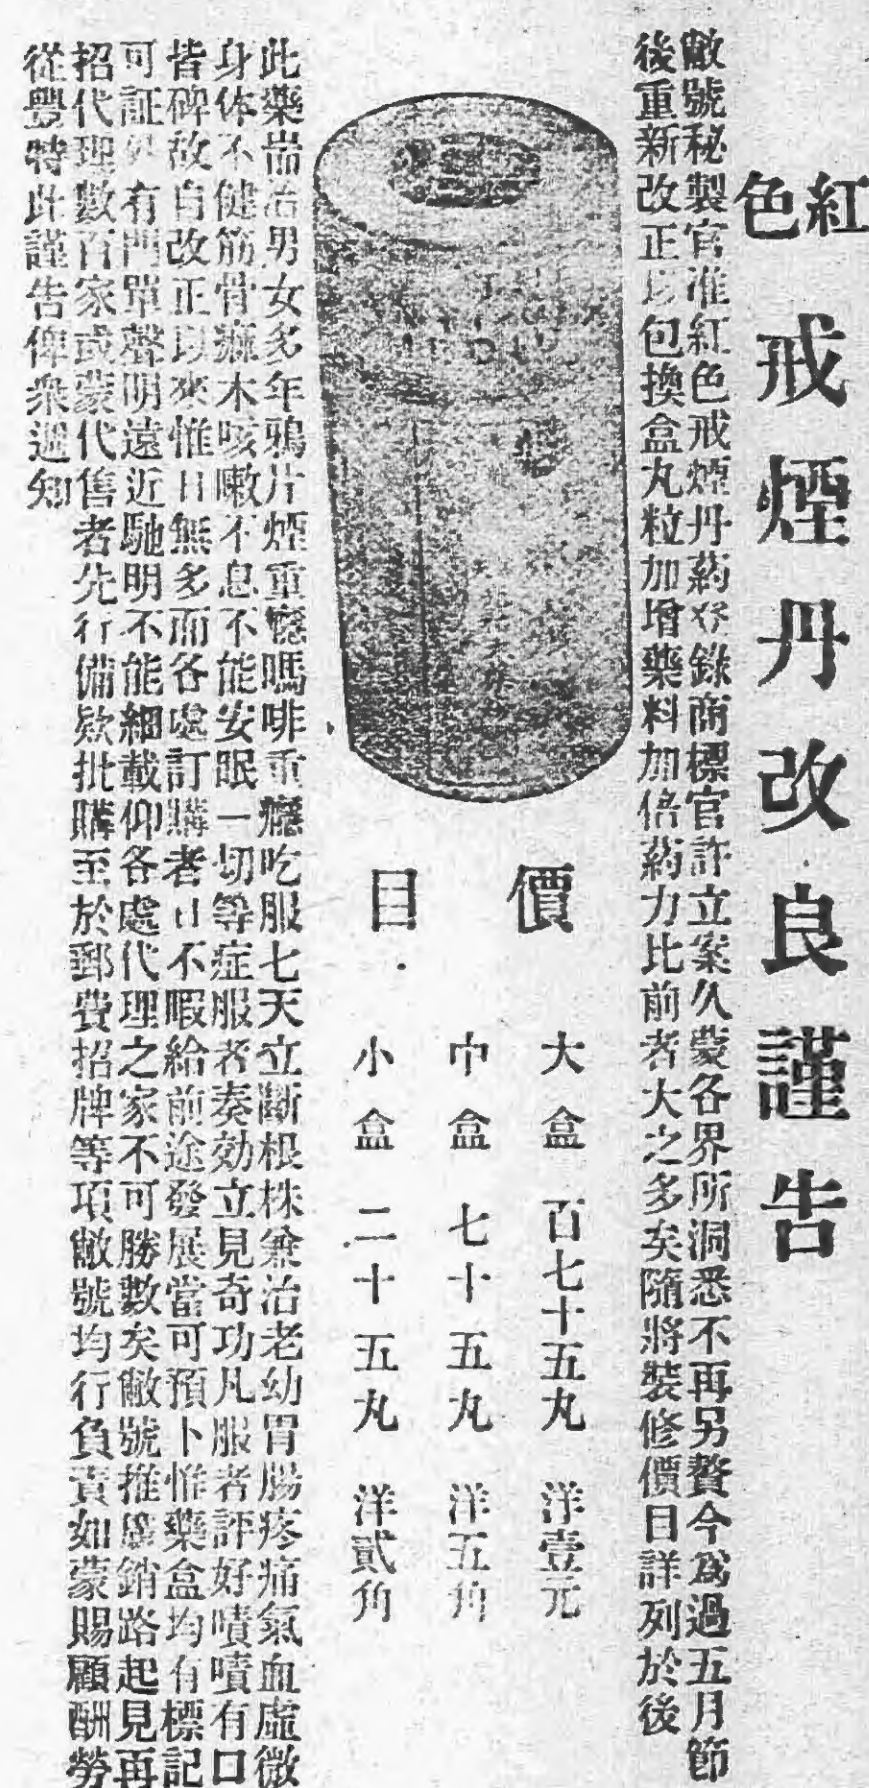 紅色
戒煙丹改良謹告
敝號秘製官准紅色戒煙丹葯登錄商標官許立案久蒙各界所洞悉不再另贅今為過五月節
後重新改正以包換盒丸粒加增藥料加倍葯力比前者大之多矣隨將裝修價目詳列於後
價目
大盒 百七十五丸 洋壹元
中盒 七十五丸 洋五角
小盒 二十五丸 洋貳角
此藥耑治男女多年鴉片煙重癮嗎啡重癮吃服七天立斷根株兼治老幼胃腸疼痛氣血虛微
身体不健筋骨痲木咳嗽不息不能安眠一切等症服者奏効立見奇功凡服者評好嘖嘖有口
皆碑故自改正以來惟日無多而各處訂購者日不暇給前途發展當可預卜惟藥盒均有標記
可証外有門單聲明遠近馳明不能細載仰各處代理之家不可勝數矣敝號推廣銷路起見再
招代理數百家或蒙代售者先行備欵批購至於郵費招牌等項敝號均行負責如蒙賜顧酬勞
從豐特此謹告俾衆週知